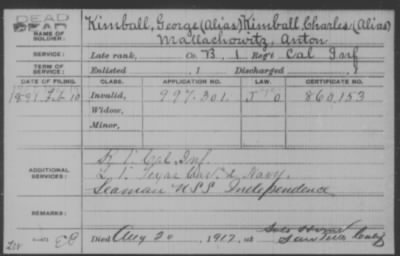 DEAD
NAME OF SOLDIER: Kimball, George (Alias) Kimball Charles (Alias)
Mallachowitz, Anton
SERVICE: Late rank, Co. B, 1 Reg't Cal Inf
TERM OF SERVICE: Enlisted , 1 Discharged , 1
DATE OF FILING. CLASS. APPLICATION NO. LAW. CERTIFICATE NO.
1891 Feb 10 Invalid, 997.301. 860,153
Widow,
Minor,
ADDITIONAL SERVICES: 1 Cal. Inf.
1 Texas Cav. & Navy.
Seaman USS Independence
REMARKS:
Died Aug 20, 1917, at